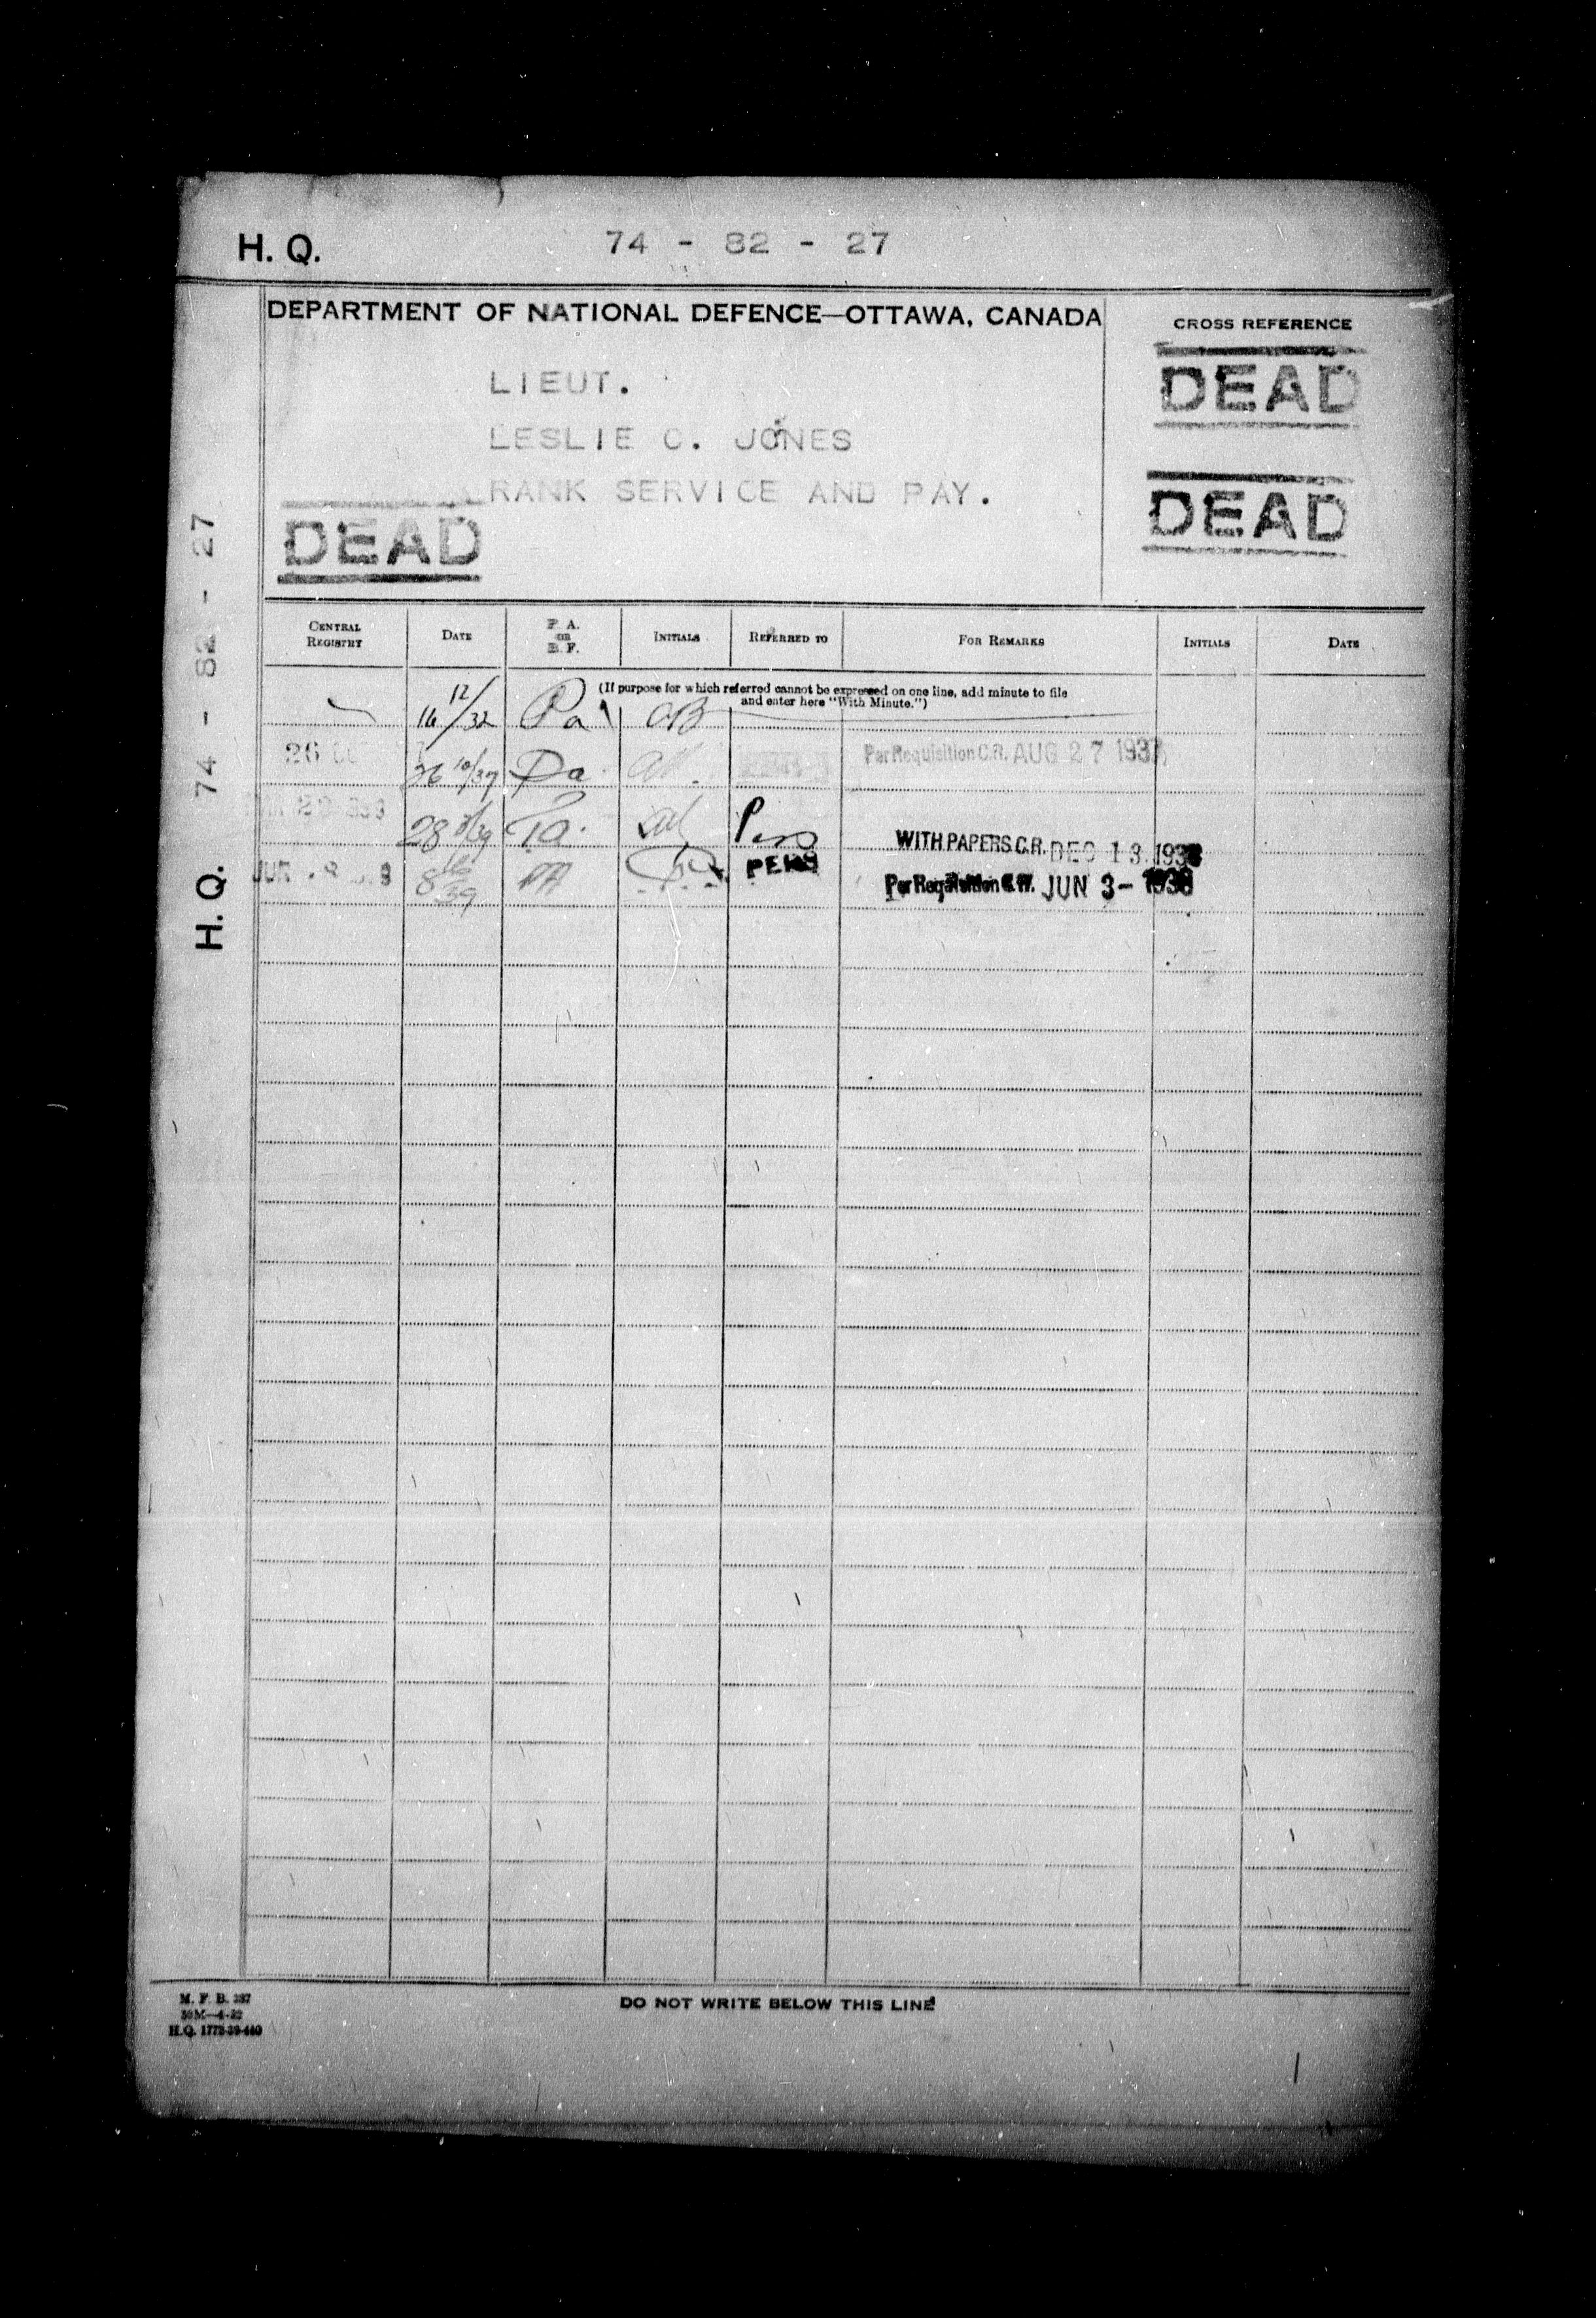 H. Q. 74 - 82 - 27
DEPARTMENT OF NATIONAL DEFENCE—OTTAWA, CANADA
CROSS REFERENCE
LIEUT.
LESLIE C. JONES
RANK SERVICE AND PAY.
DEAD
DEAD
DEAD
H. Q. 74 - 82 - 27
CENTRAL REGISTRY DATE P. A. OR B. F. INITIALS REFERRED TO FOR REMARKS INITIALS DATE
(If purpose for which referred cannot be expressed on one line, add minute to file
and enter here "With Minute.")
16 12/32 Pa
26 26 10/37 Pa Per Requisition C.R. AUG 27 1937
28 /39 Pa Pers WITH PAPERS C.R. DEC 13 193
JUN 8 8 6/39 PA PERS Per Requisition C.R. JUN 3- 193
M. F. B. 287
50M—4-32
H.Q. 1772-39-440
DO NOT WRITE BELOW THIS LINE